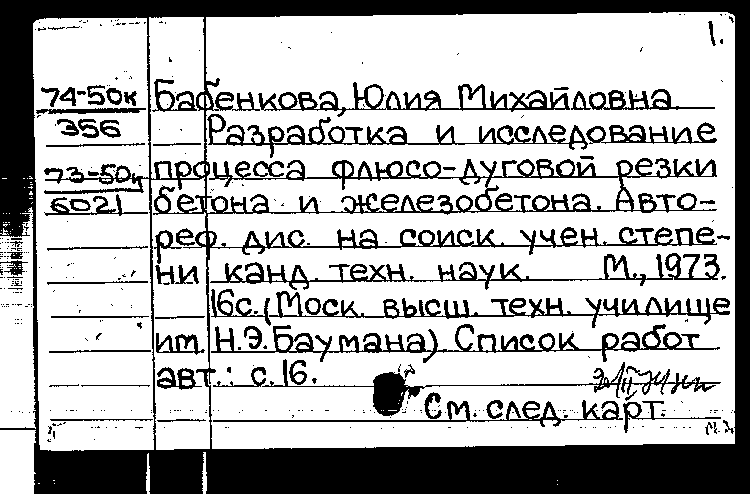 1.
74-50к
356
73-50к
6021
Бабенкова, Юлия Михайловна.
Разработка и исследование
процесса флюсо-дуговой резки
бетона и железобетона. Авто-
реф. дис. на соиск. учен. степе-
ни канд. техн. наук. М., 1973.
16с. (Моск. высш. техн. училище
им. Н.Э.Баумана). Список работ
авт.: с.16.
См. след. карт.